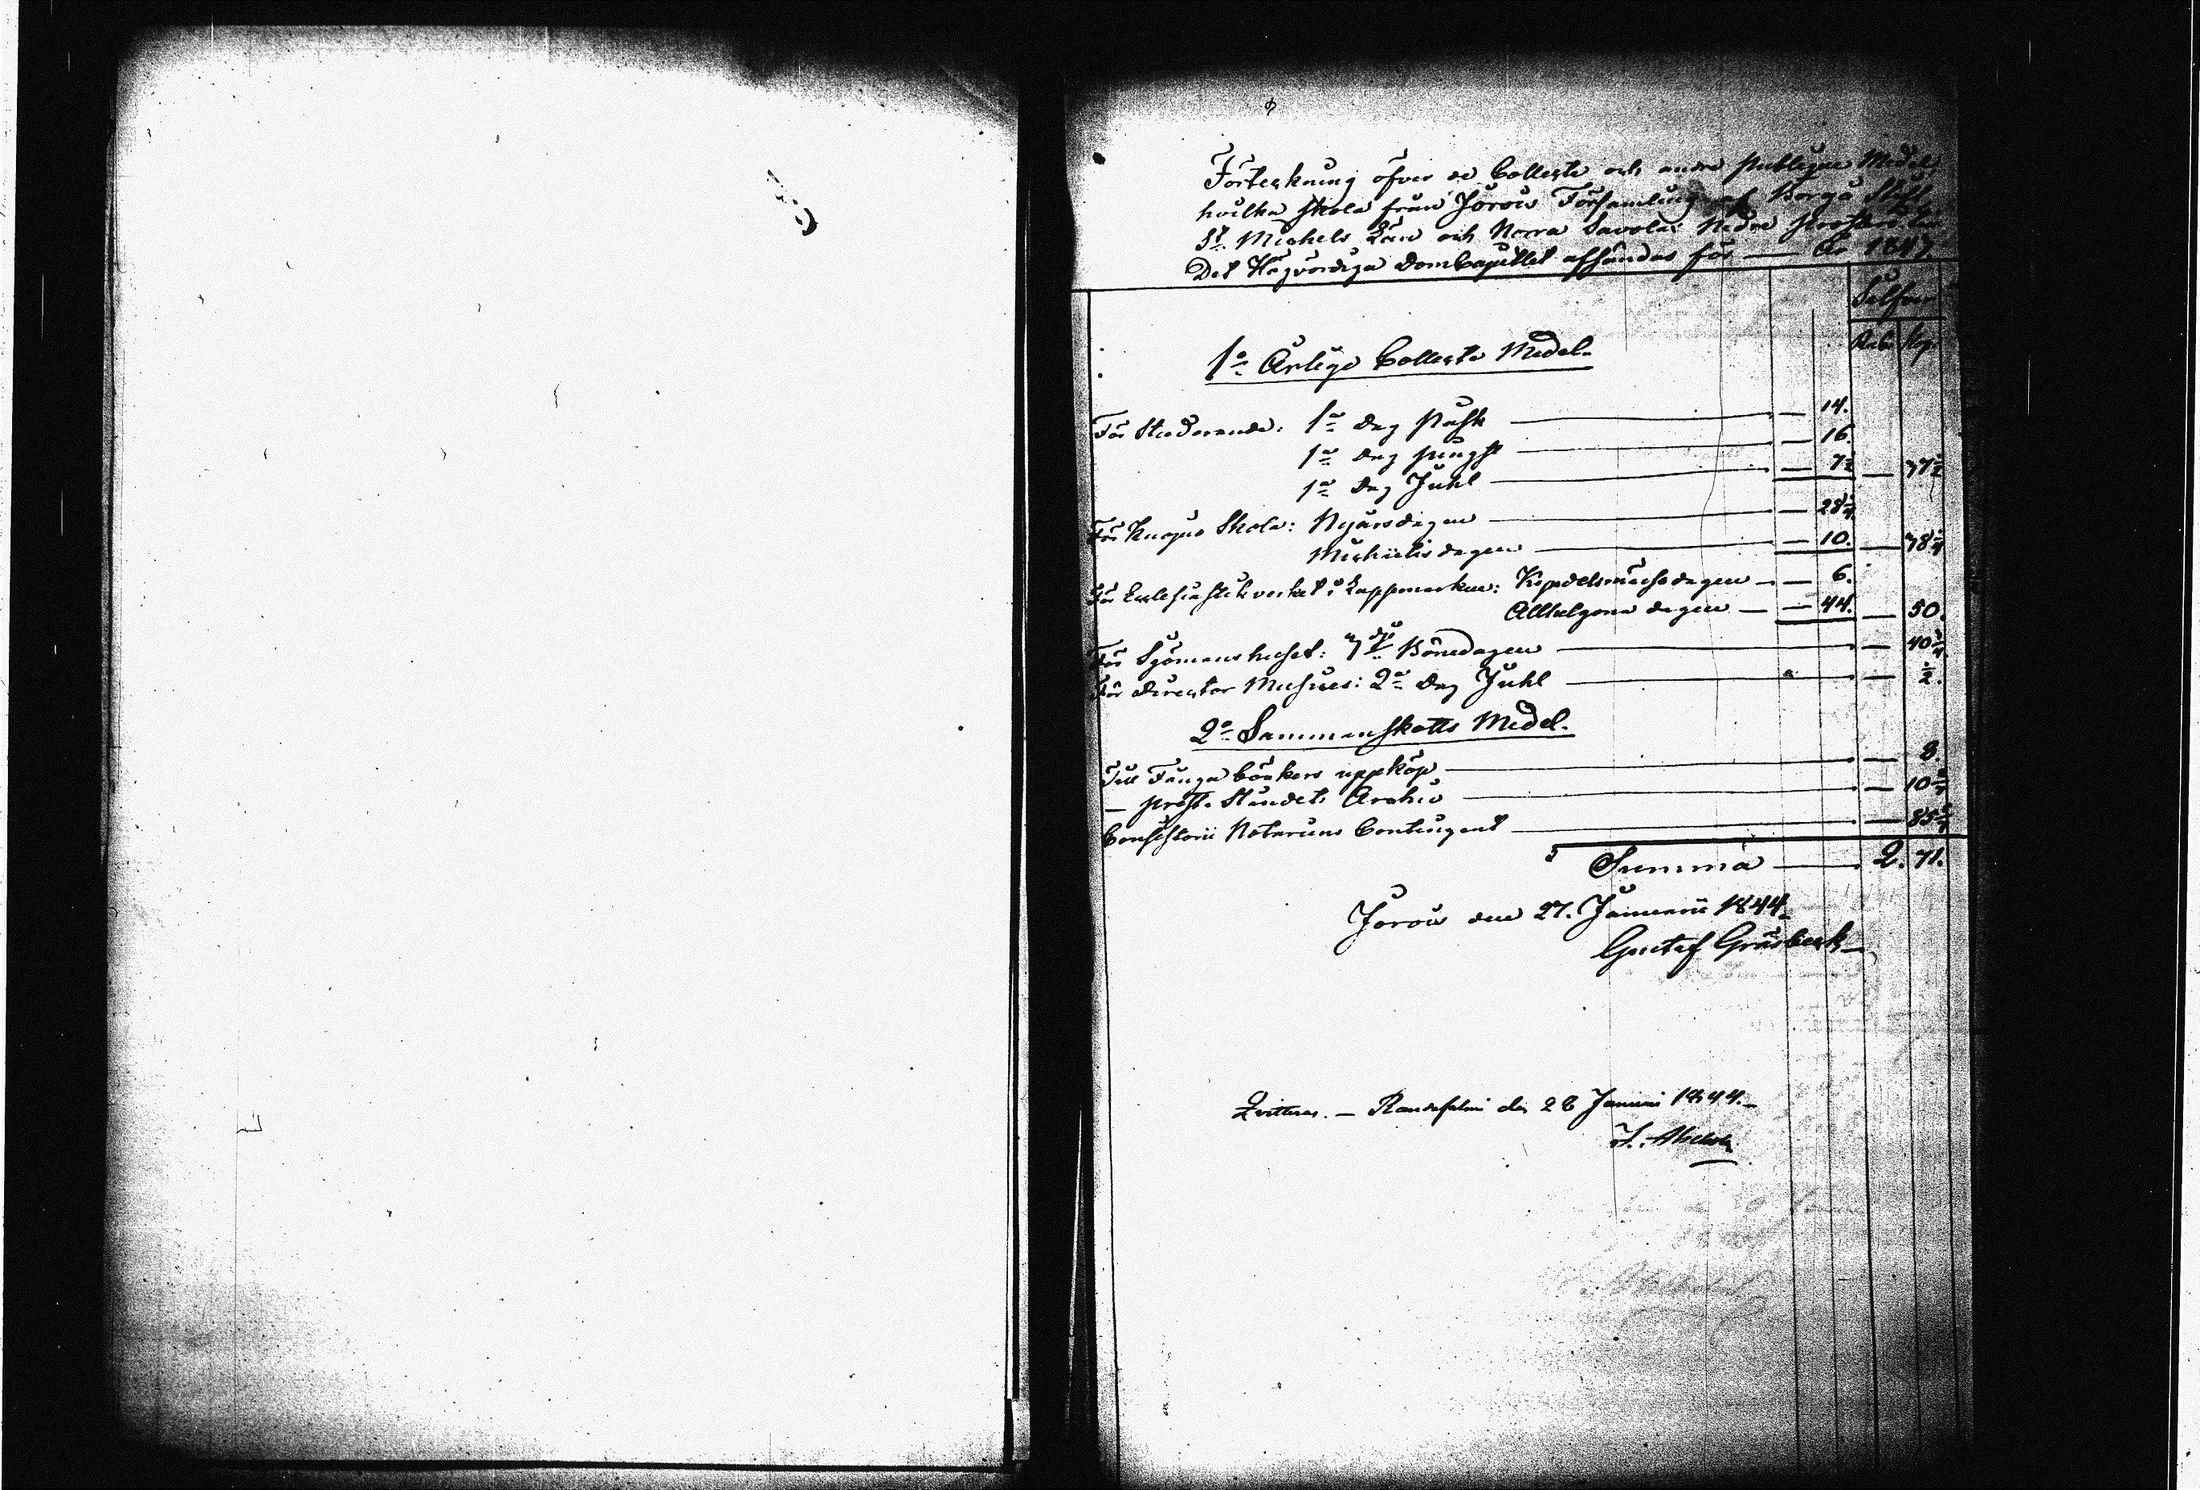 Förteckning öfver de Collecte och andre publique Medel,
hvilka skola från Jorois Församling af Borgå Stift,
St. Michels Län och Norra Savolax Nedre Prosteri till
Det Högvördiga DomCapitlet afsändas för — År 1843.
Silfver
Rub. Kop.
1o Årlige Collecte Medel.
För Studerande: 1a Dag Påsk — 14.
1a Dag Pingst — 16.
1a Dag Juhl — 7 1/2 — 37 1/2
För Kuopio Skola: Nyårsdagen — 28 1/4
Michielis dagen — 10. — 38 1/4
För Ecclesiastikverket i Lappmarken: Kyndelsmässodagen — 6.
Allhelgona dagen — 44. — 50.
För Sjömanshuset: Bönedagen — 40
För Director 2a Dag Juhl — 1/2.
2o Sammanskotts Medel.
Till Fånga böckers uppköp — 8.
— Preste Ståndets Archiv — 10
Consistorii Notariens Contingent — 85
Summa — 2. 71.
Jorois den 27. Januarii 1844.
Gustaf Gråsbeck
Qvitteras. — Randasalmi den 28 Januari 1844.